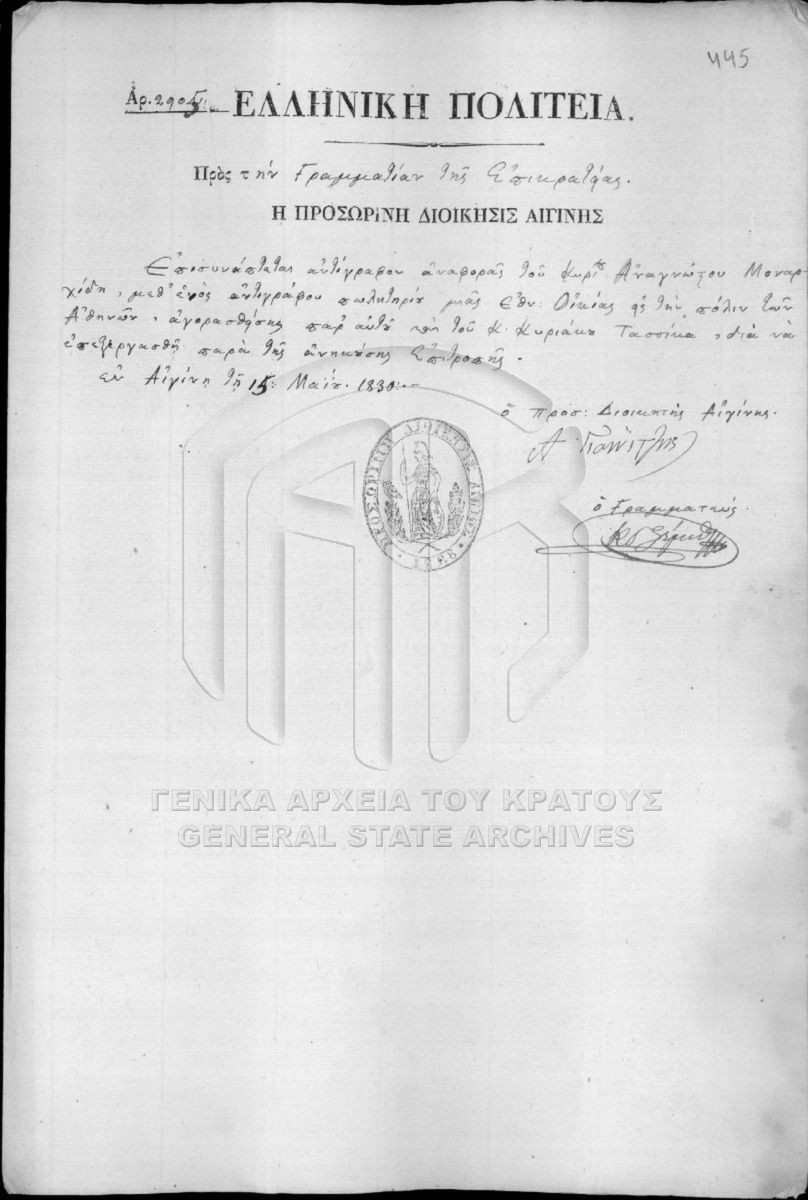 445
Ἀρ. 2905. ΕΛΛΗΝΙΚΗ ΠΟΛΙΤΕΙΑ.
Πρὸς τὴν Γραμματίαν τῆς Ἐπικρατείας.
Η ΠΡΟΣΩΡΙΝΗ ΔΙΟΙΚΗΣΙΣ ΑΙΓΙΝΗΣ
Ἐπισυνάπτεται ἀντίγραφον ἀναφορᾶς τοῦ Κυρίου Ἀναγνώστου Μοναρ-
χίδη, μεθ' ἑνὸς ἀντιγράφου πωλητηρίου μιᾶς Ἐθν: Οἰκίας εἰς τὴν πόλιν τῶν
Ἀθηνῶν, ἀγορασθείσης παρ' αὐτοῦ τοῦ Κ. Κυριάκου Τασσίκα, διὰ νὰ
ἐπεξεργασθῇ παρὰ τῆς ἀνηκούσης Ἐπιτροπῆς.
ἐν Αἰγίνῃ τῇ 15: Μαΐου 1830:-
ὁ προσ: Διοικητὴς Αἰγίνης.
ὁ Γραμματεὺς.
ΠΡΟΣΩΡΙΝΗ ΔΙΟΙΚΗΣΙΣ ΑΙΓΙΝΗΣ
ΓΕΝΙΚΑ ΑΡΧΕΙΑ ΤΟΥ ΚΡΑΤΟΥΣ
GENERAL STATE ARCHIVES